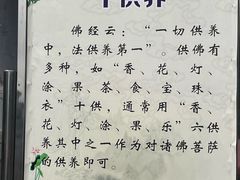 十供养
佛经云：“一切供养
中，法供养第一”。供佛有
多种，如“香、花、灯、
涂、果、茶、食、宝、珠、
衣”十供，通常用“香、
花、灯、涂、果、乐”六供
养其中之一作为对诸佛菩萨
的供养即可。